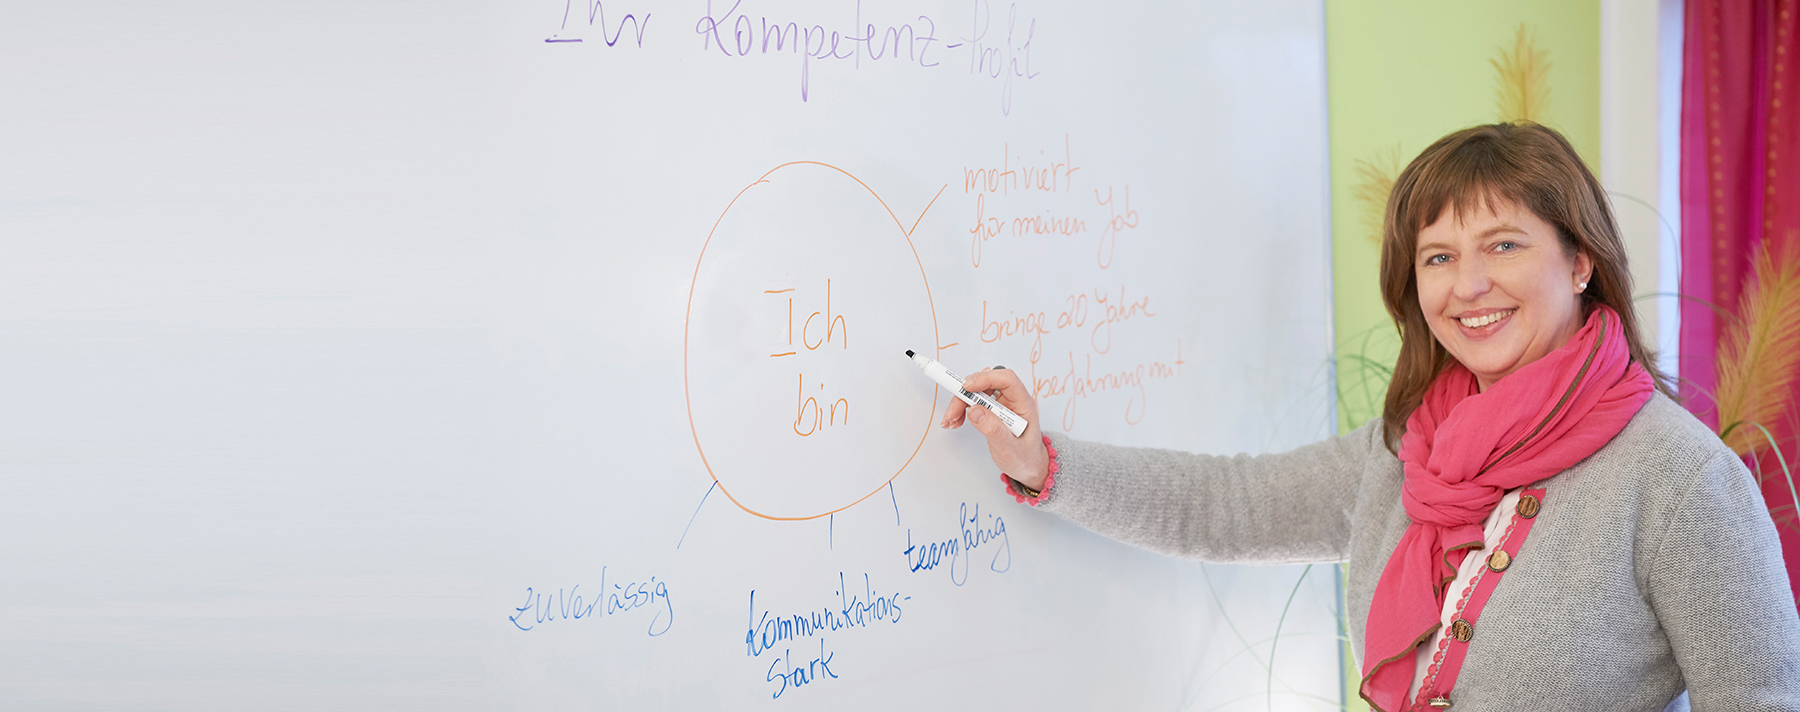 Ihr Kompetenz-Profil
motiviert
für meinen Job
Ich
bin
bringe 20 Jahre
mit
teamfähig
zuverlässig
Kommunikations-
stark